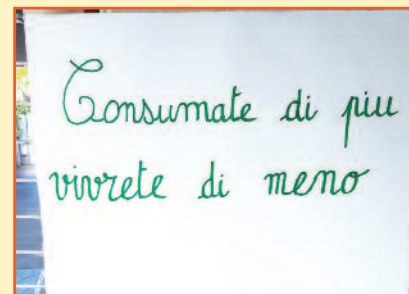 Consumate di piu
vivrete di meno